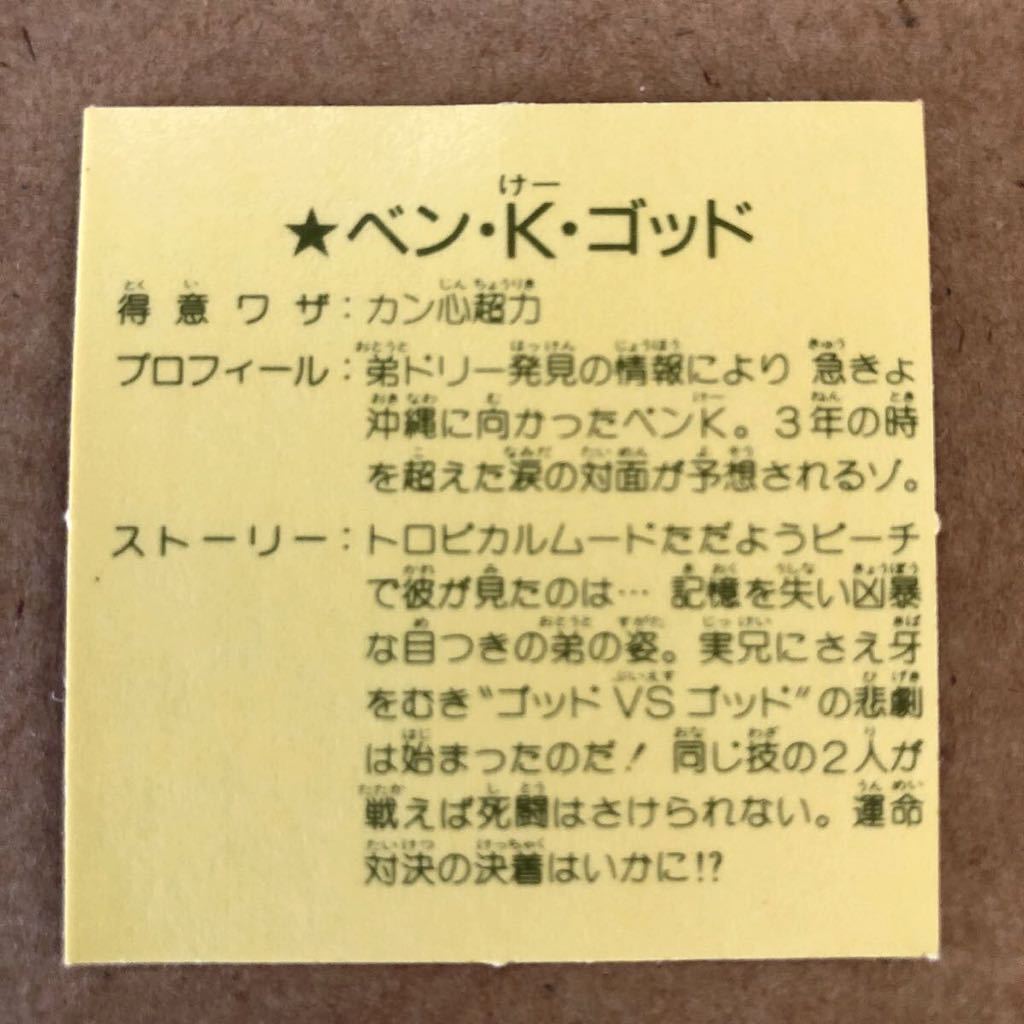 ★ベン・K・ゴッド
得意ワザ：カン心超力
プロフィール：弟ドリー発見の情報により 急きょ
沖縄に向かったベンK。3年の時
を超えた涙の対面が予想されるゾ。
ストーリー：トロピカルムードただようビーチ
で彼が見たのは… 記憶を失い凶暴
な目つきの弟の姿。実兄にさえ牙
をむき“ゴッド VS ゴッド”の悲劇
は始まったのだ! 同じ技の2人が
戦えば死闘はさけられない。運命
対決の決着はいかに!?